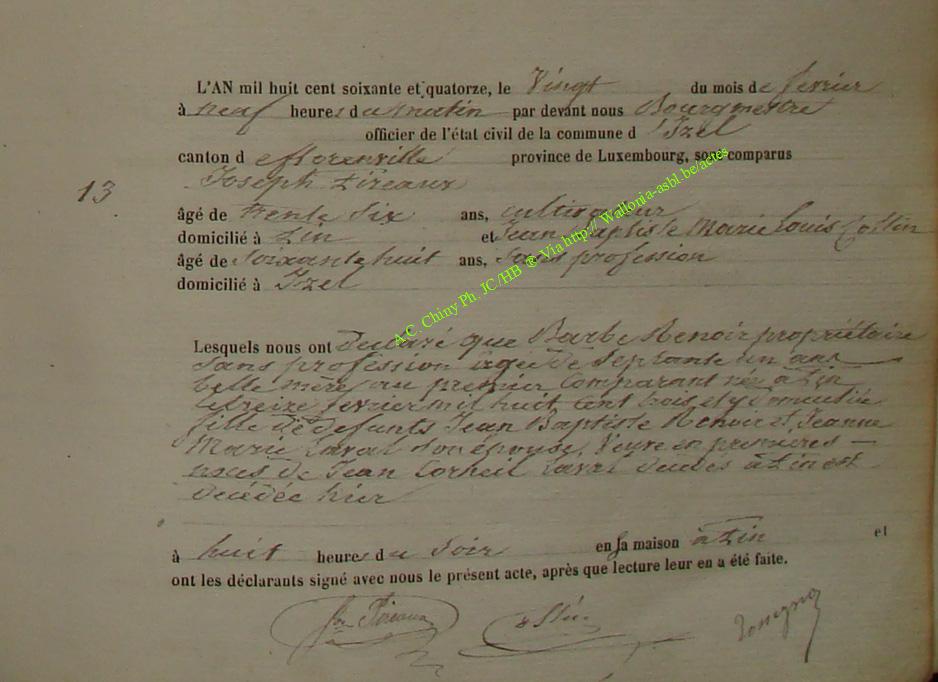 L'AN mil huit cent soixante et quatorze, le Vingt du mois de fevrier
à neuf heures du matin par devant nous Bourgmestre
officier de l'état civil de la commune d'Izel
canton de florenville province de Luxembourg, sont comparus
13 Joseph
âgé de trente Six ans, cultivateur
domicilié à et Jean Baptiste Marie Louis Collin
âgé de Soixante huit ans, Sans profession
domicilié à Izel
A.C. Chiny Ph. JC/HB @ Via http:// Wallonia-asbl.be/actes
Lesquels nous ont declaré que Barbe propriétaire
sans profession agée de Septante un ans
belle mère au premier Comparant née à
le treize fevrier mil huit Cent trois et y domiciliée
fille de defunts Jean Baptiste et Jeanne
Marie Laval Son épouse, Veuve en premières
noces de Jean Laval decedé à est
decédée hier
à huit heures du Soir en la maison à et
ont les déclarants signé avec nous le présent acte, après que lecture leur en a été faite.